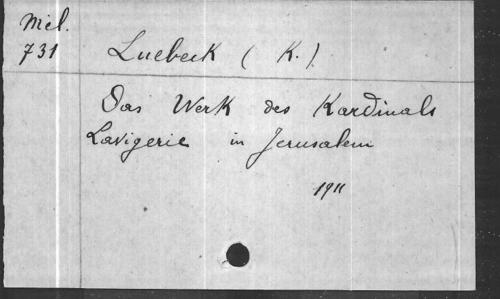 Mél.
731
Luebeck (K.)
Das Werk des Kardinals
Lavigerie in Jerusalem
1911